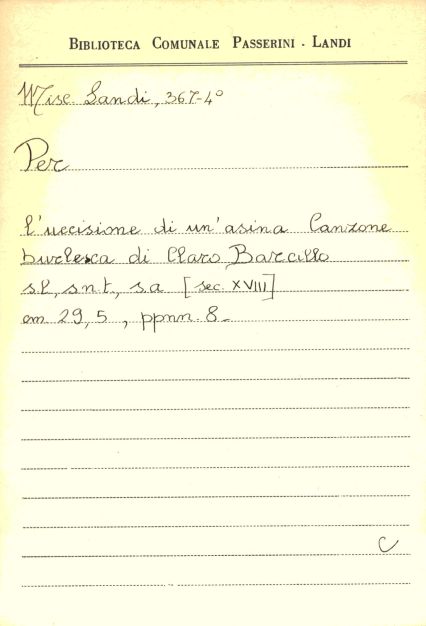 BIBLIOTECA COMUNALE PASSERINI - LANDI
Misc. Landi, 367-4°
Per
l'uccisione di un'asina Canzone
burlesca di Claro Barcillo
s.l, s.n.t., s.a [sec. XVIII]
cm 29,5, ppnn. 8-
C